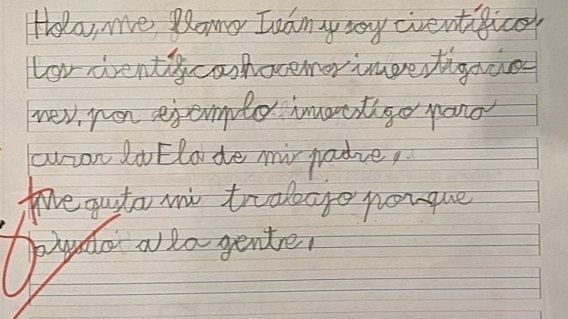 Hola, me llamo Iván y soy cientifico,
los cientificos hacemos investigacio-
nes, por ejemplo investigo para
curar la Ela de mi padre,
Me gusta mi trabajo porque
ayudo a la gente,